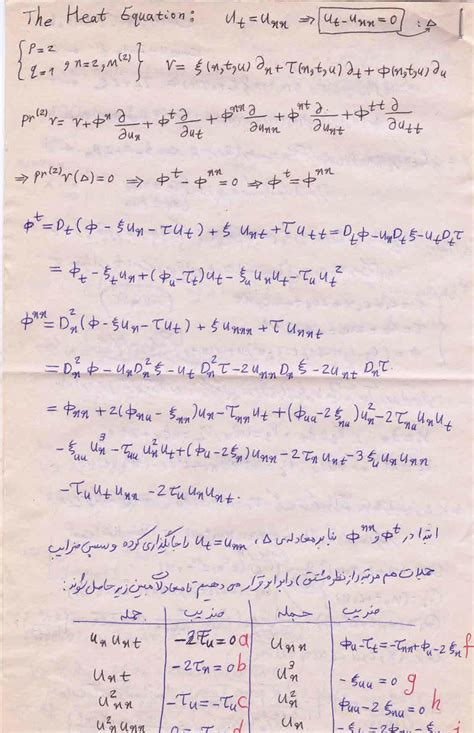 The Heat Equation: u_t = u_xx ⇒ u_t - u_xx = 0 : Δ
{ p=2 q=1 , n=2, M^(2) } v = ξ(x,t,u)∂_x + τ(x,t,u)∂_t + φ(x,t,u)∂_u
pr^(2) v = v + φ^x ∂/∂u_x + φ^t ∂/∂u_t + φ^xx ∂/∂u_xx + φ^xt ∂/∂u_xt + φ^tt ∂/∂u_tt
⇒ pr^(2) v(Δ) = 0 ⇒ φ^t - φ^xx = 0 ⇒ φ^t = φ^xx
φ^t = D_t(φ - ξu_x - τu_t) + ξ u_xt + τ u_tt = D_tφ - u_xD_tξ - u_tD_tτ
= φ_t - ξ_t u_x + (φ_u - τ_t)u_t - ξ_u u_x u_t - τ_u u_t^2
φ^xx = D_x^2(φ - ξu_x - τu_t) + ξ u_xxx + τ u_xxt
= D_x^2 φ - u_x D_x^2 ξ - u_t D_x^2 τ - 2u_xx D_x ξ - 2u_xt D_x τ
= φ_xx + 2(φ_xu - ξ_xx)u_x - τ_xx u_t + (φ_uu - 2ξ_xu)u_x^2 - 2τ_xu u_x u_t
- ξ_uu u_x^3 - τ_uu u_x^2 u_t + (φ_u - 2ξ_x)u_xx - 2τ_x u_xt - 3ξ_u u_x u_xx
- τ_u u_t u_xx - 2τ_u u_x u_xt.
ابتدا در φ^t و φ^xx بنا بر معادله‌ی Δ، u_t = u_xx را جاگذاری کرده و سپس ضرایب
جملات هم مرتبه را (از نظر مشتق) برابر قرار می دهیم تا معادلات معین زیر حاصل شوند:
جمله ضریب جمله ضریب
u_x u_xt -2τ_u = 0 a u_xx φ_u - τ_t = -τ_xx + φ_u - 2ξ_x f
u_xt -2τ_x = 0 b u_x^3 -ξ_uu = 0 g
u_xx^2 -τ_u = -τ_u c u_x^2 φ_uu = 0 h
u_x^2 u_xx d u_x